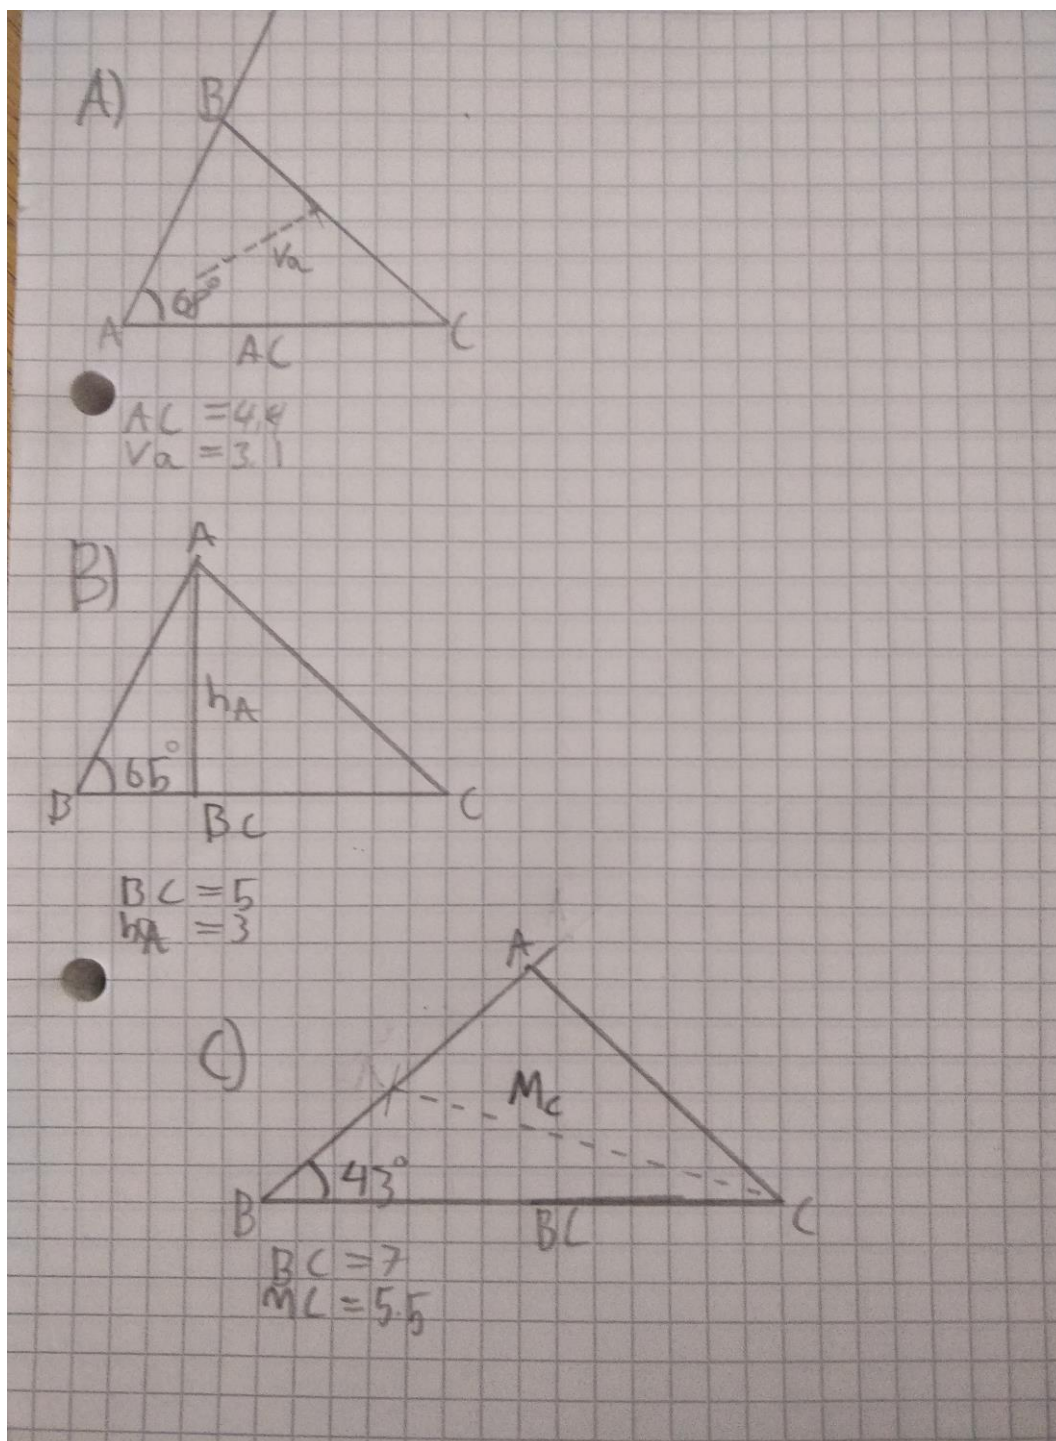 A)
B
Va
A
C
AC
AC = 4.4
Va = 3.1
B)
A
hA
65°
B
C
BC
BC = 5
hA = 3
C)
A
Mc
43°
B
C
BC
BC = 7
MC = 5.5